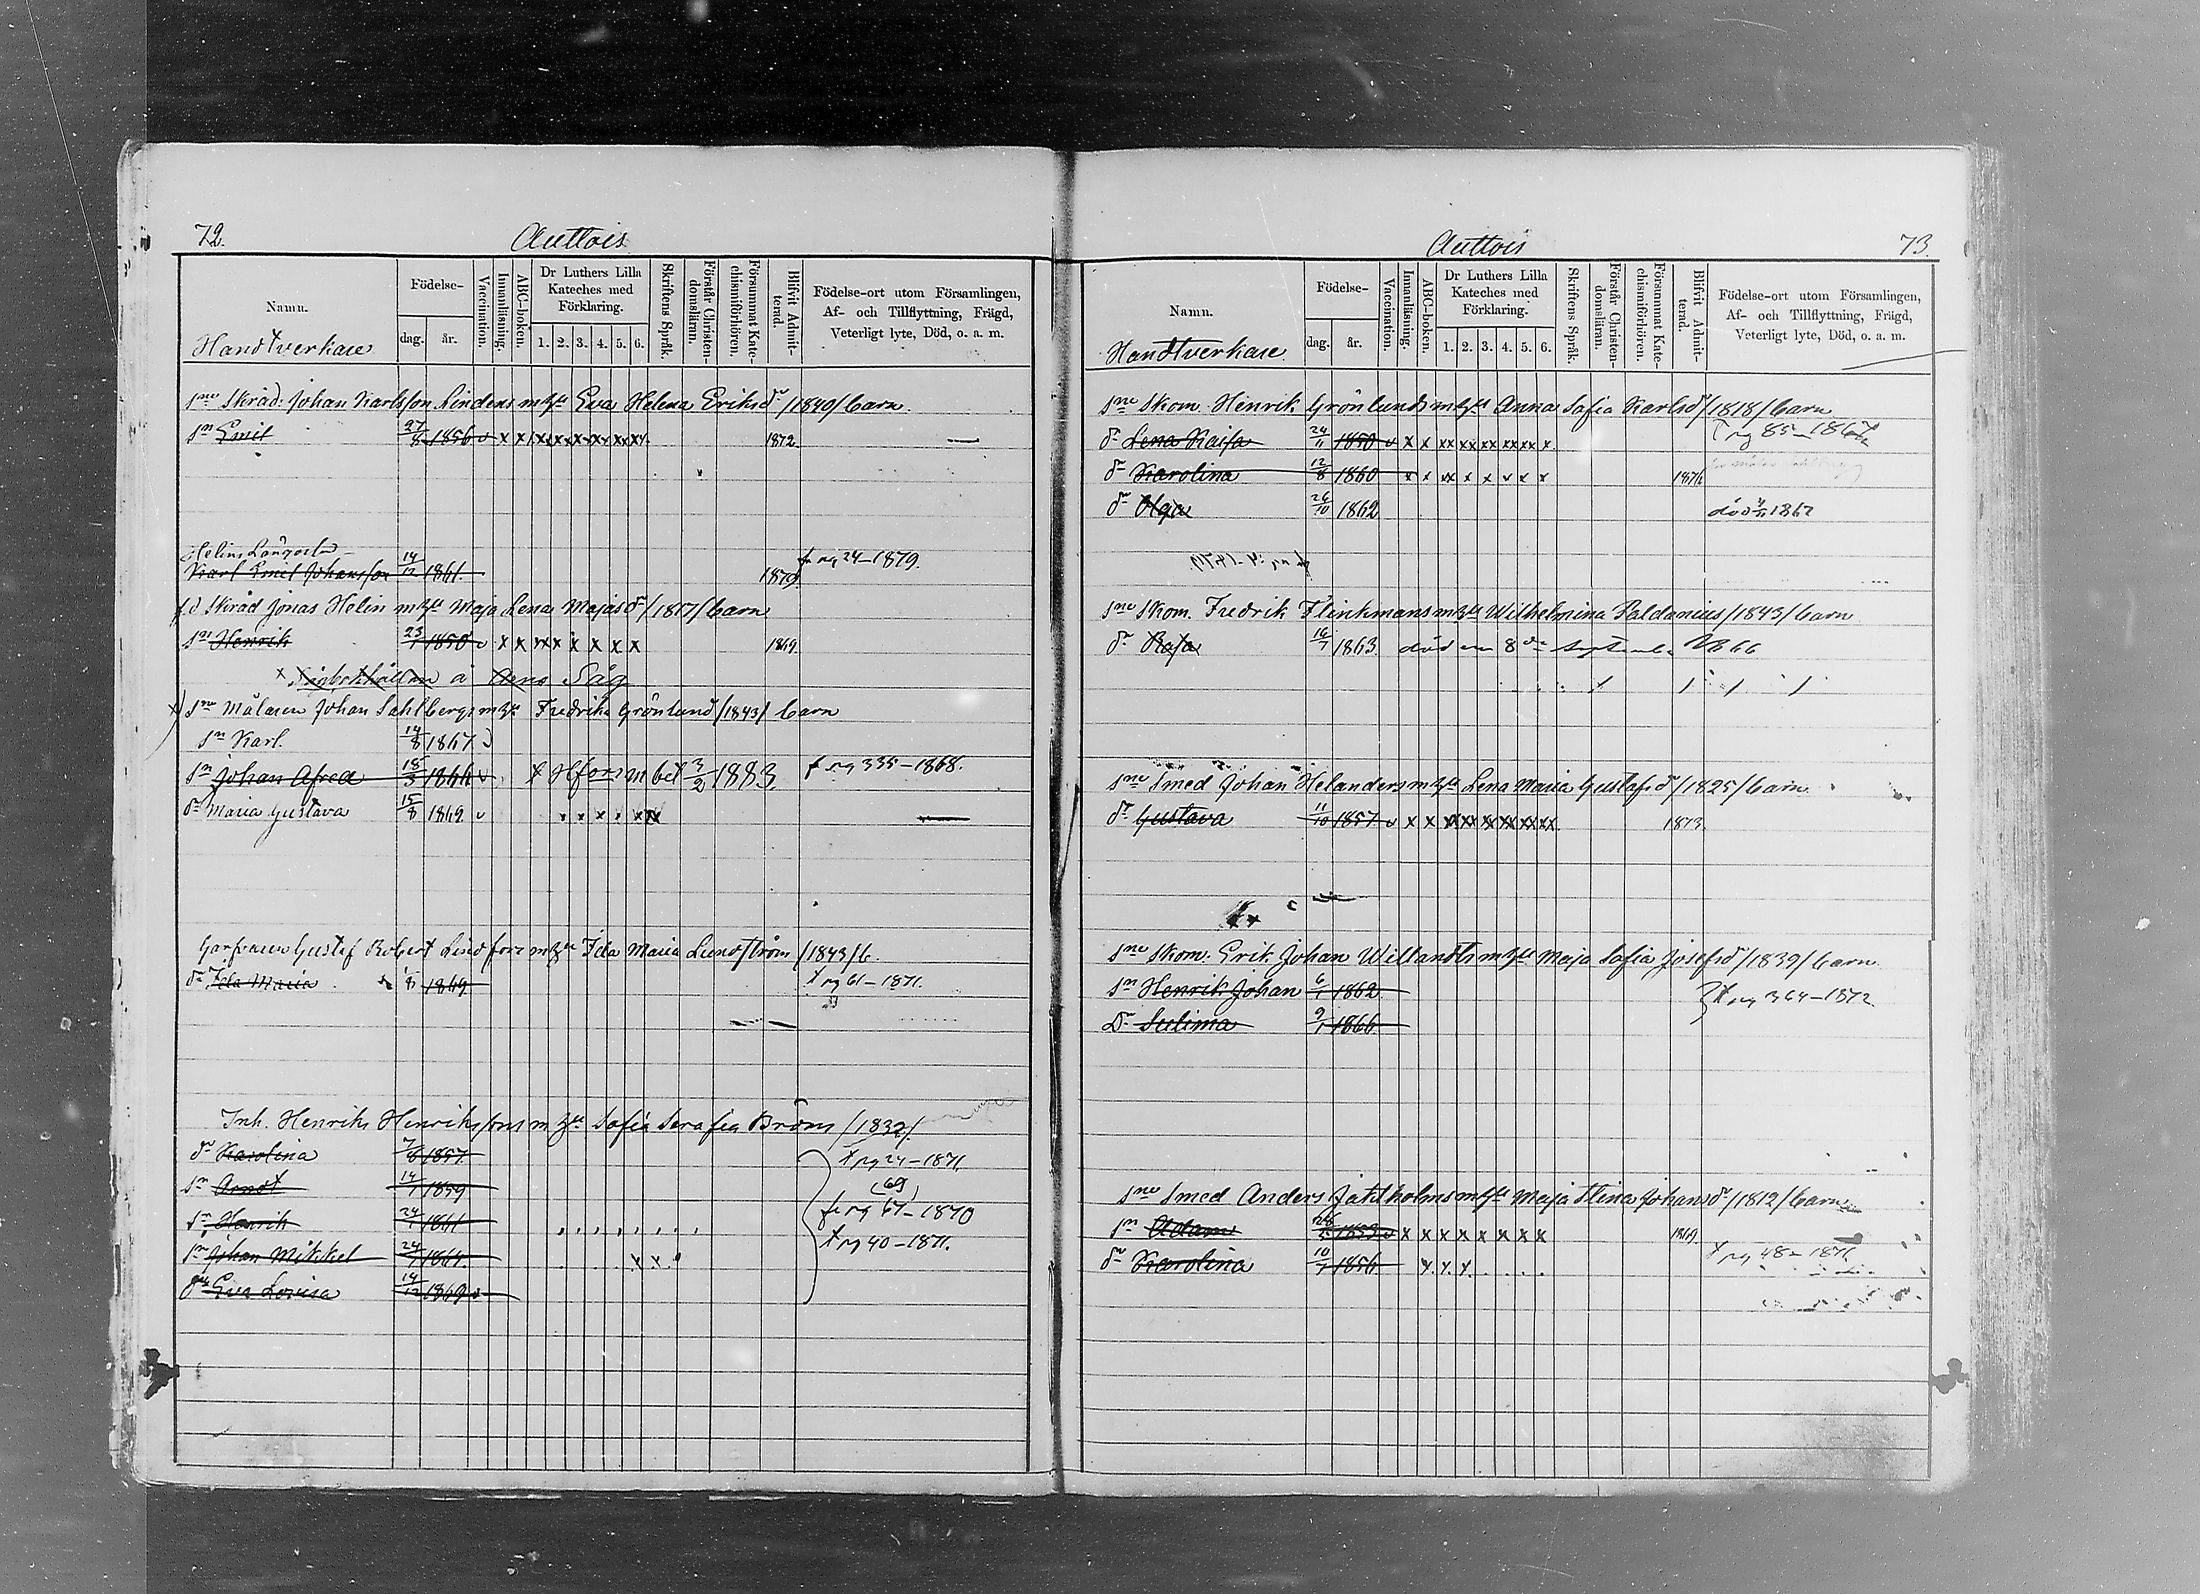 72.
Auttois
Namn.
Födelse-
dag.
år.
Vaccination.
Innanläsning.
ABC-boken.
Dr Luthers Lilla Kateches med Förklaring.
1. 2. 3. 4. 5. 6.
Skriftens Språk.
Förstår Christendomsläran.
Försummat Katechismiförhören.
Blifvit Admitterad.
Födelse-ort utom Församlingen, Af- och Tillflyttning, Frägd, Veterligt lyte, Död, o. a. m.
Handtverkare
sne Skräd. Johan Karlsson Lindens m hu Eva Helena Eriksdr /1840/ barn
sn Emil 27/8 1856 v x x xx xx x xx xx xx 1872
Helins Långorla
Karl Emil Johansson 14/12 1861. 1879. fr pg 24-1879.
f.d Skräd Jonas Helin m hu Maja Lena Majasdr /1817/ barn
sn Henrik 23/1 1850 v x x xx x x x x x 1869.
x å Såg
sne Målaren Johan Sahlbergs m hu Fredrika Grönlund /1843/ barn
sn Karl. 14/8 1867.
sn Johan Afred 18/3 1866 v t Hfors m bet 3/2 1883. f pg 335-1868.
dr Maria Gustava 15/8 1869 v x x x x x
Garfvaren Gustaf Robert Lindfors m hu Ida Maria Lundström /1843/ b
dr Ida Maria 1869 t pg 61-1871.
Inh. Henrik Henrikssons m hu Sofia Serafia Bröms /1832/.
dr Karolina 7/8 1857. t pg 24-1871
sn Arndt 14/1 1859 (69)
sn Henrik 24/1 1861 fr pg 67-1870
sn Johan Mikkel 24/7 1864. x x t pg 40-1871.
dr Eva Lovisa 14/12 1869 v
Auttois
73.
Namn.
Födelse-
dag.
år.
Vaccination.
Innanläsning.
ABC-boken.
Dr Luthers Lilla Kateches med Förklaring.
1. 2. 3. 4. 5. 6.
Skriftens Språk.
Förstår Christendomsläran.
Försummat Katechismiförhören.
Blifvit Admitterad.
Födelse-ort utom Församlingen, Af- och Tillflyttning, Frägd, Veterligt lyte, Död, o. a. m.
Handtverkare
sne Skom. Henrik Grönlunds m hu Anna Sofia Karlsdr /1818/ barn
dr Lena Kajsa 24/11 1850 v x x xx xx xx xx xx x t pg 85-1867
dr Karolina 12/8 1860 x x xx x x x x x 1876
dr Olga 26/10 1862 död 1867
sne Skom. Fredrik Flinkmans m hu Wilhelmina Paldanius /1843/ barn
dr Kajsa 16/7 1863 död den 8de September 1866
sne Smed Johan Helanders m hu Lena Maria Gustafsdr /1825/ barn
dr Gustava 11/10 1857. v x x xx xx xx xx xx xx 1873
sne Skom. Erik Johan Willandts m hu Maja Sofia Josefsdr /1839/ barn
sn Henrik Johan 6/1 1862 t pg 364-1872
Dr Sulima 9/1 1866
sne Smed Anders Jahtholms m hu Maja Stina Johansdr /1812/ barn
sn Adam 1853 v x x x x x x x x 1869.
dr Karolina 10/7 1856 x. x. x. t pg 48-1871.